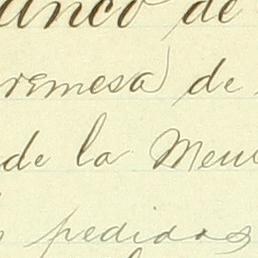 anco de
remesa de
de la Men
pedidos